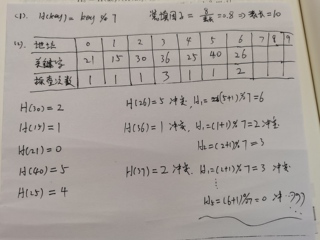 (1). H(key) = key % 7 装填因子 = 8/表长 = 0.8 ⇒ 表长 = 10
(2). 地址 0 1 2 3 4 5 6 7 8 9
关键字 21 15 30 36 25 40 26
探查次数 1 1 1 3 1 1 2
H(30) = 2 H(26) = 5 冲突, H₁ = (5+1)%7 = 6
H(15) = 1 H(36) = 1 冲突, H₁ = (1+1)%7 = 2 冲突
H(21) = 0 H₂ = (2+1)%7 = 3
H(40) = 5 H(37) = 2 冲突, H₁ = (2+1)%7 = 3 冲突
H(25) = 4 ⋮
= (6+1)%7 = 0 冲